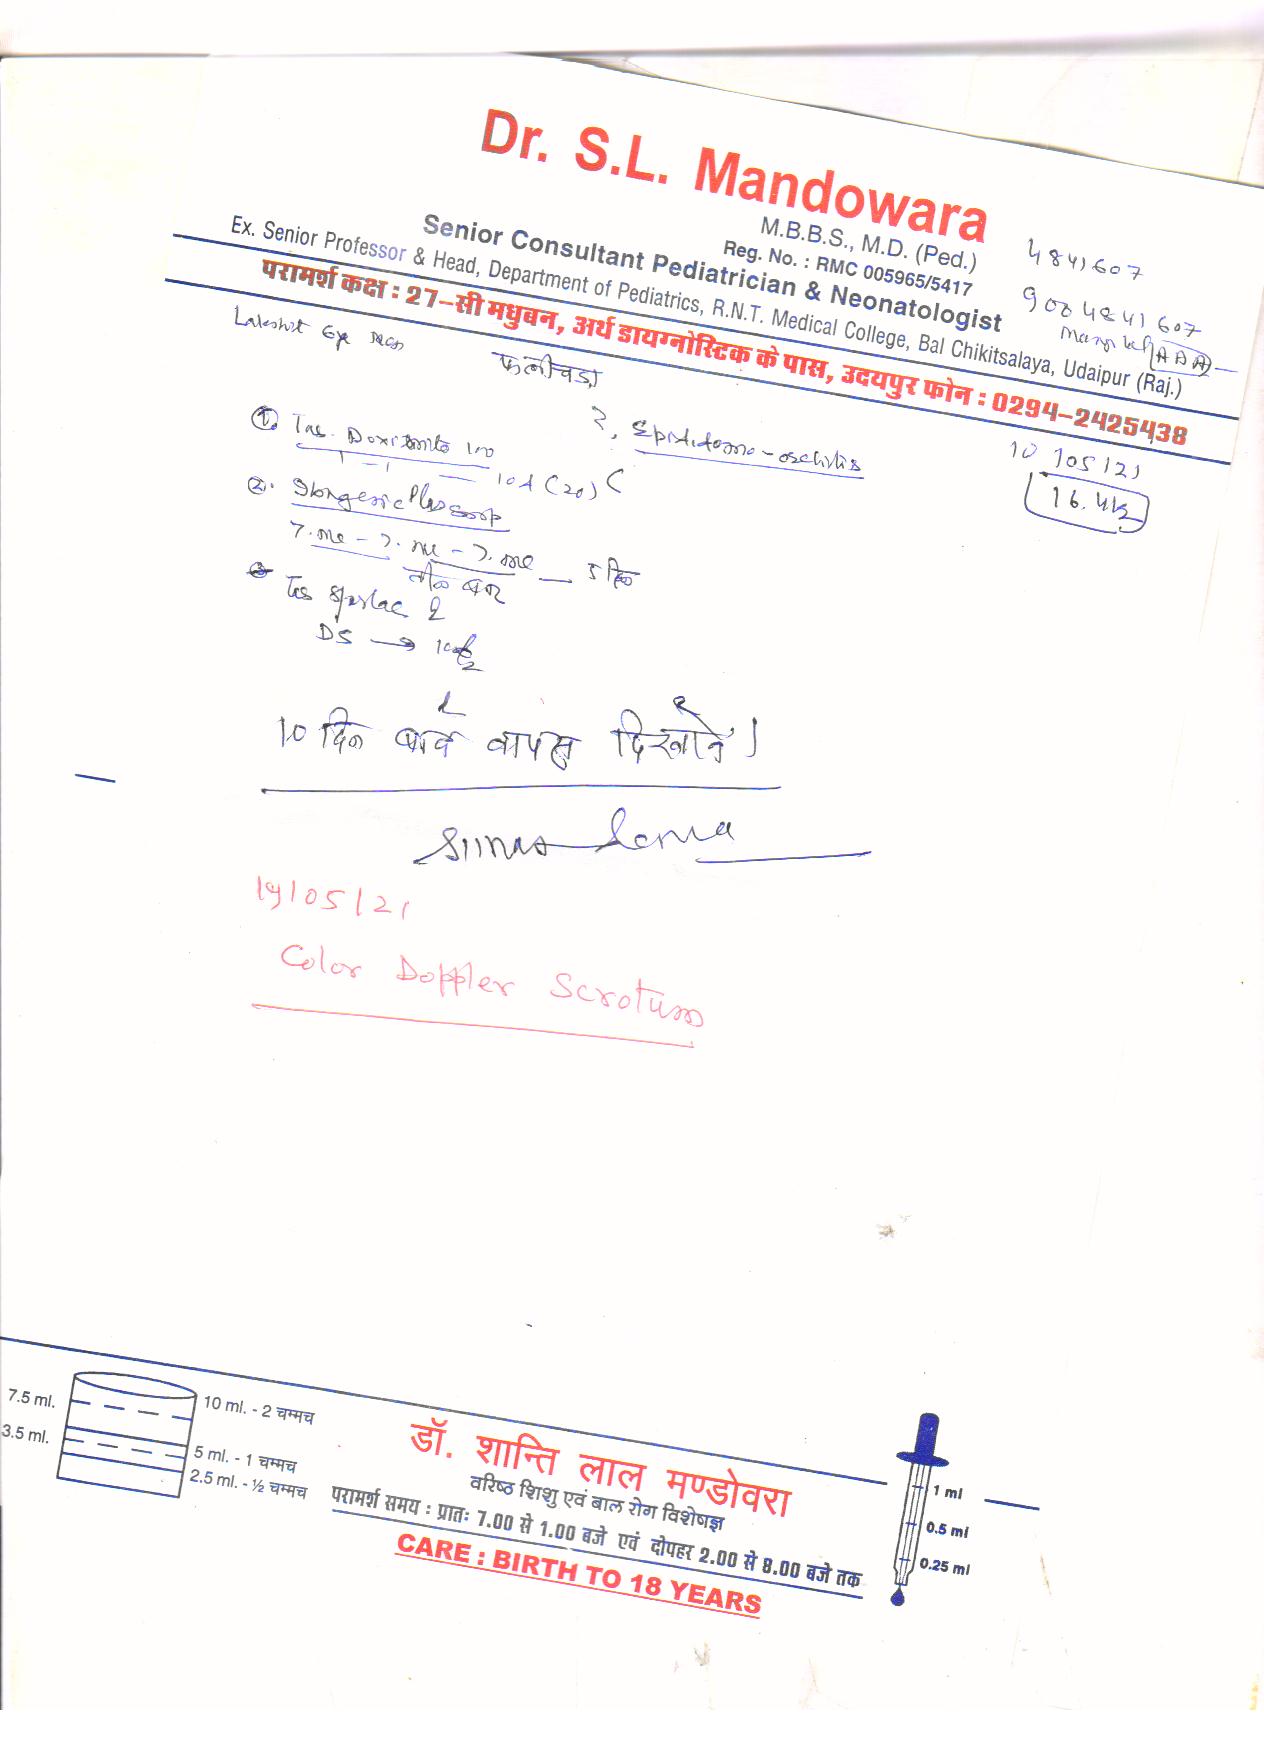 Dr. S.L. Mandowara
M.B.B.S., M.D. (Ped.)
Reg. No. : RMC 005965/5417
Senior Consultant Pediatrician & Neonatologist
Ex. Senior Professor & Head, Department of Pediatrics, R.N.T. Medical College, Bal Chikitsalaya, Udaipur (Raj.)
परामर्श कक्ष : 27-सी मधुबन, अर्थ डायग्नोस्टिक के पास, उदयपुर फोन : 0294-2425438
4841607
9004841607
Lakshit 6yr
फलीचडा
10/05/21
①. 100
10d (20)
②. Plus
7.ml - 7.ml - 7.ml 5 दिन
तीन बार
DS →
10 दिन बाद वापस दिखावें।
19/05/21
Color Doppler Scrotum
7.5 ml.
3.5 ml.
10 ml. - 2 चम्मच
5 ml. - 1 चम्मच
2.5 ml. - ½ चम्मच
डॉ. शान्ति लाल मण्डोवरा
वरिष्ठ शिशु एवं बाल रोग विशेषज्ञ
परामर्श समय : प्रातः 7.00 से 1.00 बजे एवं दोपहर 2.00 से 8.00 बजे तक
CARE : BIRTH TO 18 YEARS
1 ml
0.5 ml
0.25 ml